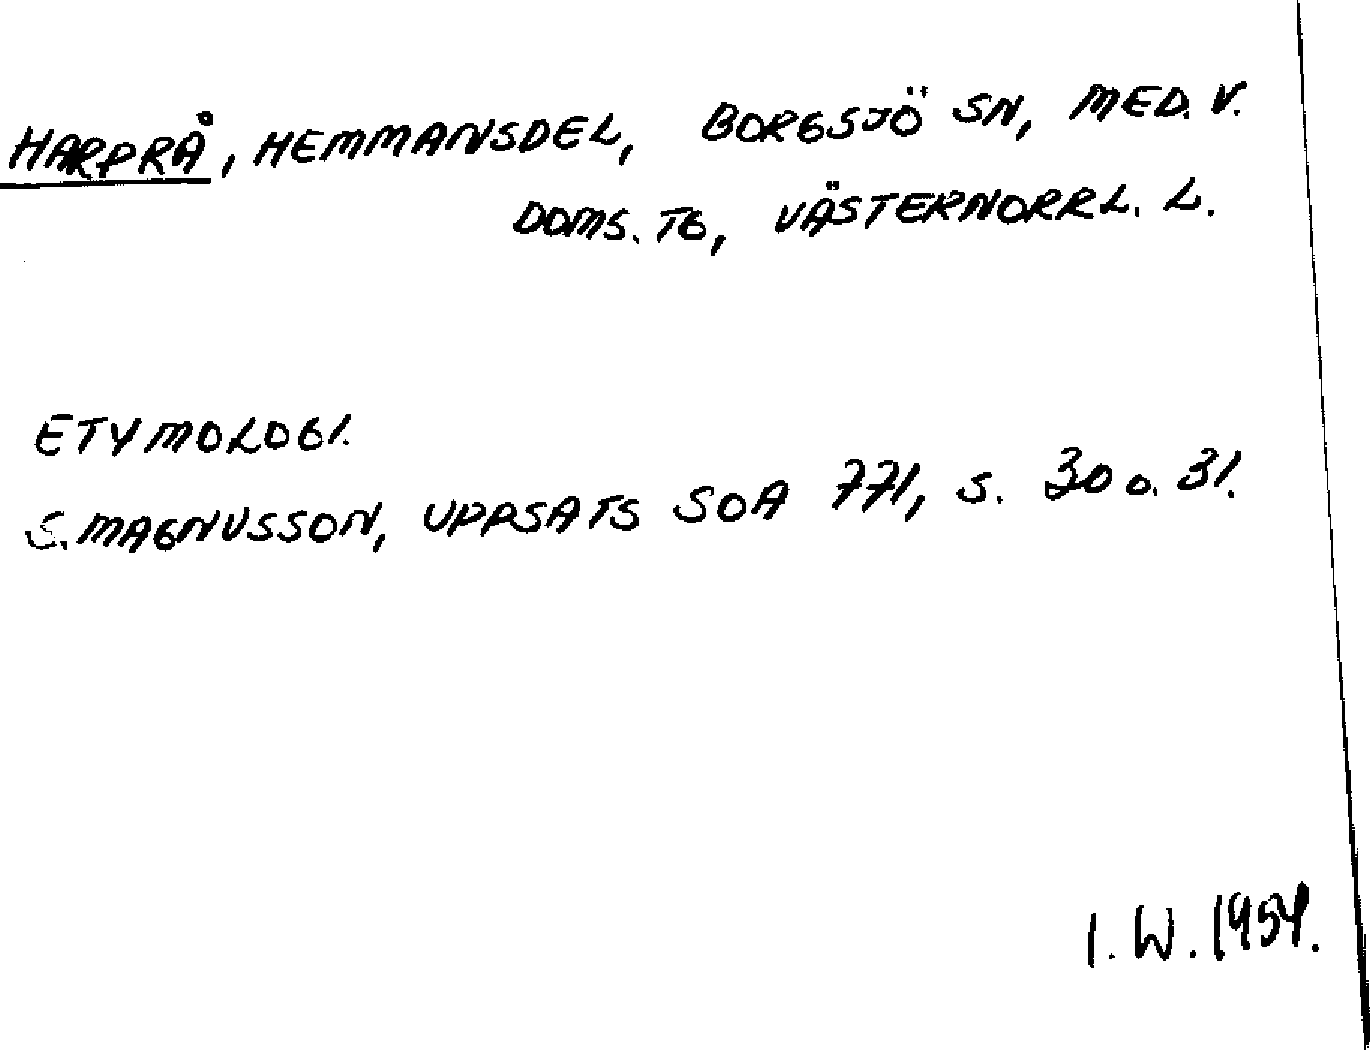 HARPRÅ, HEMMANSDEL, BORGSJÖ SN, MED. V.
DOMS. TG, VÄSTERNORRL. L.
ETYMOLOGI.
S. MAGNUSSON, UPPSATS SOA 771, s. 30 o. 31.
I. W. 1954.